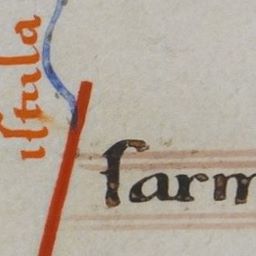 iſtula
ſarm